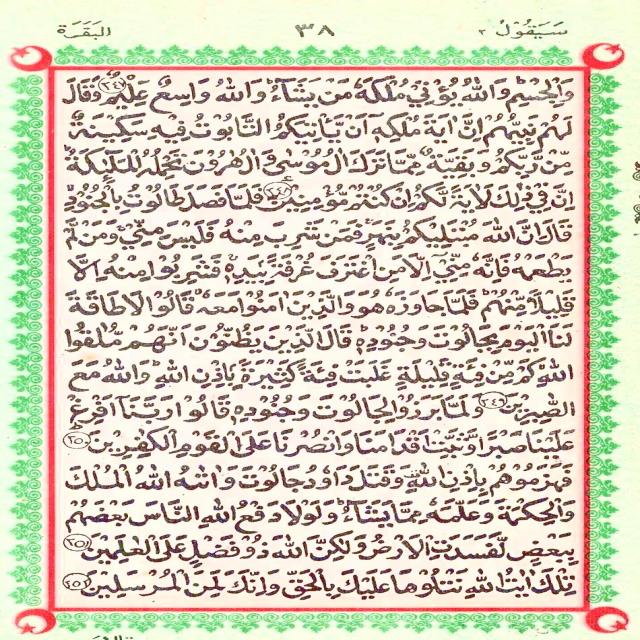 سَيَقُوْلُ ٢ ٣٨ البَقَرَة
وَالْجِسْمِ ؕ وَاللّٰهُ يُؤْتِيْ مُلْكَهٗ مَنْ يَّشَآءُ ؕ وَاللّٰهُ وَاسِعٌ عَلِيْمٌ ﴿۲۴۷﴾ وَقَالَ
لَهُمْ نَبِيُّهُمْ اِنَّ اٰيَةَ مُلْكِهٖۤ اَنْ يَّاْتِيَكُمُ التَّابُوْتُ فِيْهِ سَكِيْنَةٌ
مِّنْ رَّبِّكُمْ وَبَقِيَّةٌ مِّمَّا تَرَكَ اٰلُ مُوْسٰى وَاٰلُ هٰرُوْنَ تَحْمِلُهُ الْمَلٰٓئِكَةُ ؕ
اِنَّ فِيْ ذٰلِكَ لَاٰيَةً لَّكُمْ اِنْ كُنْتُمْ مُّؤْمِنِيْنَ ﴿۲۴۸﴾ فَلَمَّا فَصَلَ طَالُوْتُ بِالْجُنُوْدِ ۙ
قَالَ اِنَّ اللّٰهَ مُبْتَلِيْكُمْ بِنَهَرٍ ۚ فَمَنْ شَرِبَ مِنْهُ فَلَيْسَ مِنِّيْ ۚ وَمَنْ لَّمْ
يَطْعَمْهُ فَاِنَّهٗ مِنِّيْۤ اِلَّا مَنِ اغْتَرَفَ غُرْفَةًۢ بِيَدِهٖ ۚ فَشَرِبُوْا مِنْهُ اِلَّا
قَلِيْلًا مِّنْهُمْ ؕ فَلَمَّا جَاوَزَهٗ هُوَ وَالَّذِيْنَ اٰمَنُوْا مَعَهٗ ۙ قَالُوْا لَا طَاقَةَ
لَنَا الْيَوْمَ بِجَالُوْتَ وَجُنُوْدِهٖ ؕ قَالَ الَّذِيْنَ يَظُنُّوْنَ اَنَّهُمْ مُّلٰقُوا
اللّٰهِ ۙ كَمْ مِّنْ فِئَةٍ قَلِيْلَةٍ غَلَبَتْ فِئَةً كَثِيْرَةًۢ بِاِذْنِ اللّٰهِ ؕ وَاللّٰهُ مَعَ
الصّٰبِرِيْنَ ﴿۲۴۹﴾ وَلَمَّا بَرَزُوْا لِجَالُوْتَ وَجُنُوْدِهٖ قَالُوْا رَبَّنَاۤ اَفْرِغْ
عَلَيْنَا صَبْرًا وَّثَبِّتْ اَقْدَامَنَا وَانْصُرْنَا عَلَى الْقَوْمِ الْكٰفِرِيْنَ ﴿۲۵۰﴾
فَهَزَمُوْهُمْ بِاِذْنِ اللّٰهِ ۙ وَقَتَلَ دَاوٗدُ جَالُوْتَ وَاٰتٰىهُ اللّٰهُ الْمُلْكَ
وَالْحِكْمَةَ وَعَلَّمَهٗ مِمَّا يَشَآءُ ؕ وَلَوْلَا دَفْعُ اللّٰهِ النَّاسَ بَعْضَهُمْ
بِبَعْضٍ لَّفَسَدَتِ الْاَرْضُ وَلٰكِنَّ اللّٰهَ ذُوْ فَضْلٍ عَلَى الْعٰلَمِيْنَ ﴿۲۵۱﴾
تِلْكَ اٰيٰتُ اللّٰهِ نَتْلُوْهَا عَلَيْكَ بِالْحَقِّ ؕ وَاِنَّكَ لَمِنَ الْمُرْسَلِيْنَ ﴿۲۵۲﴾